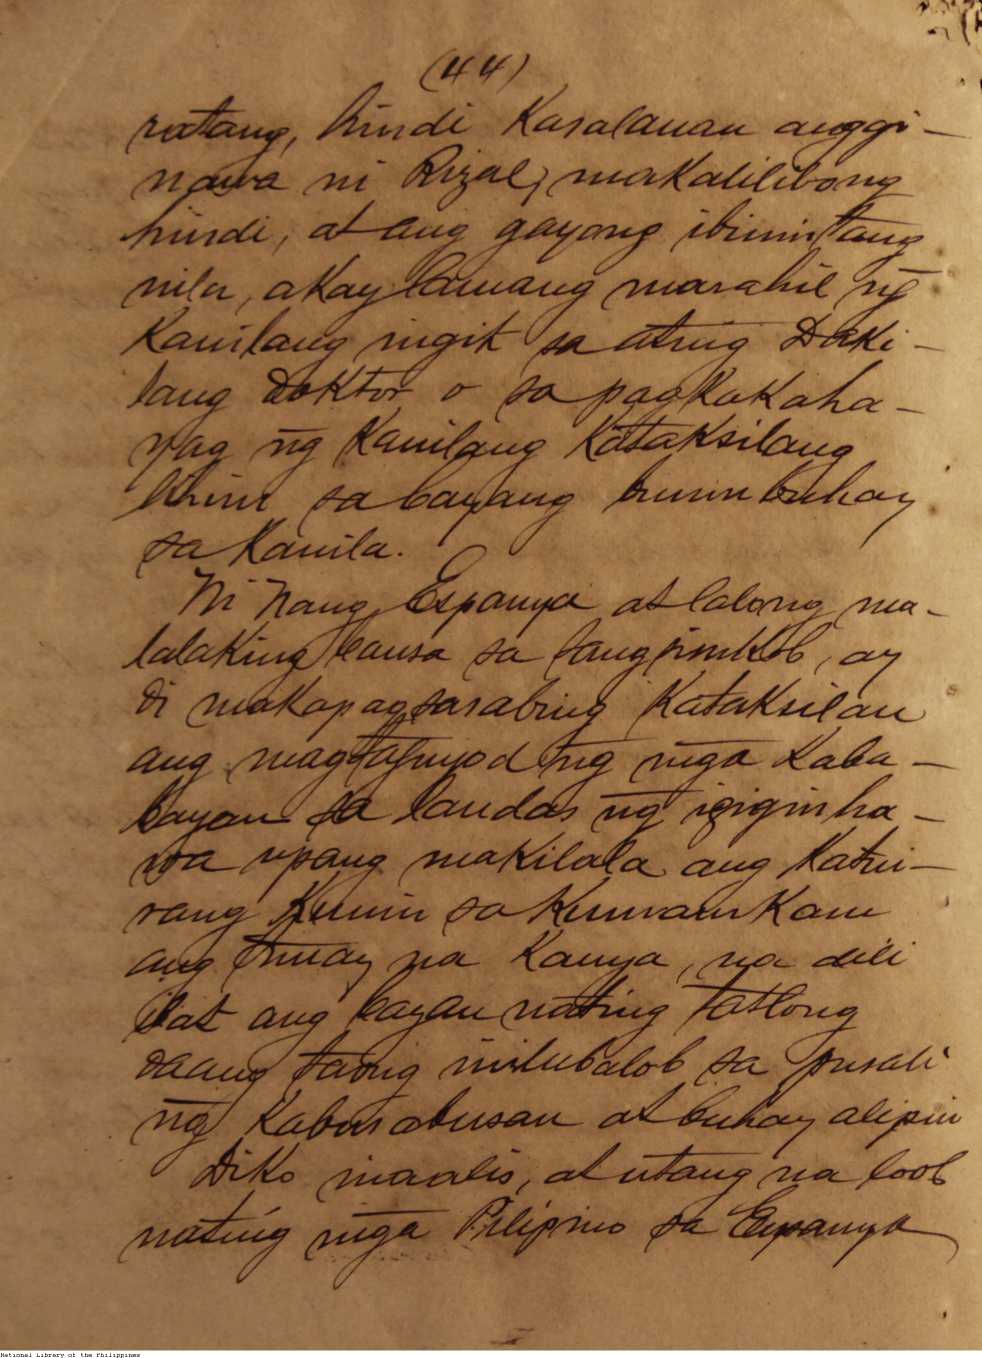 (44)
ratang, hindi Kasalanan ang gi-
nawa ni Rizal, makalilibong
hindi, at ang gayong ibinintang
nila, akay lamang marahil ng̃
Kanilang ingit sa ating Daki-
lang Doktor o sa pagkakaha-
yag ng̃ Kanilang Kataksilang
lihim sa bayang bumubuhay
sa Kanila.
Ni Nang Espanya at lalong ma-
lalaking bansa sa sangsinukob, ay
di makapagsasabing Kataksilan
ang magtaguyod ng̃ mga Kaba-
bayan sa landas ng̃ igiginha-
wa upang makilala ang Katui-
rang Kunin sa Kumamkam
ang tunay na Kanya, na dili
iba't ang bayan nating tatlong
daang taong inilubalob sa pusali
ng̃ Kabusabusan at buhay alipin
Diko inaalis, at utang na loob
nating mga Pilipino sa Espanya
National Library of the Philippines